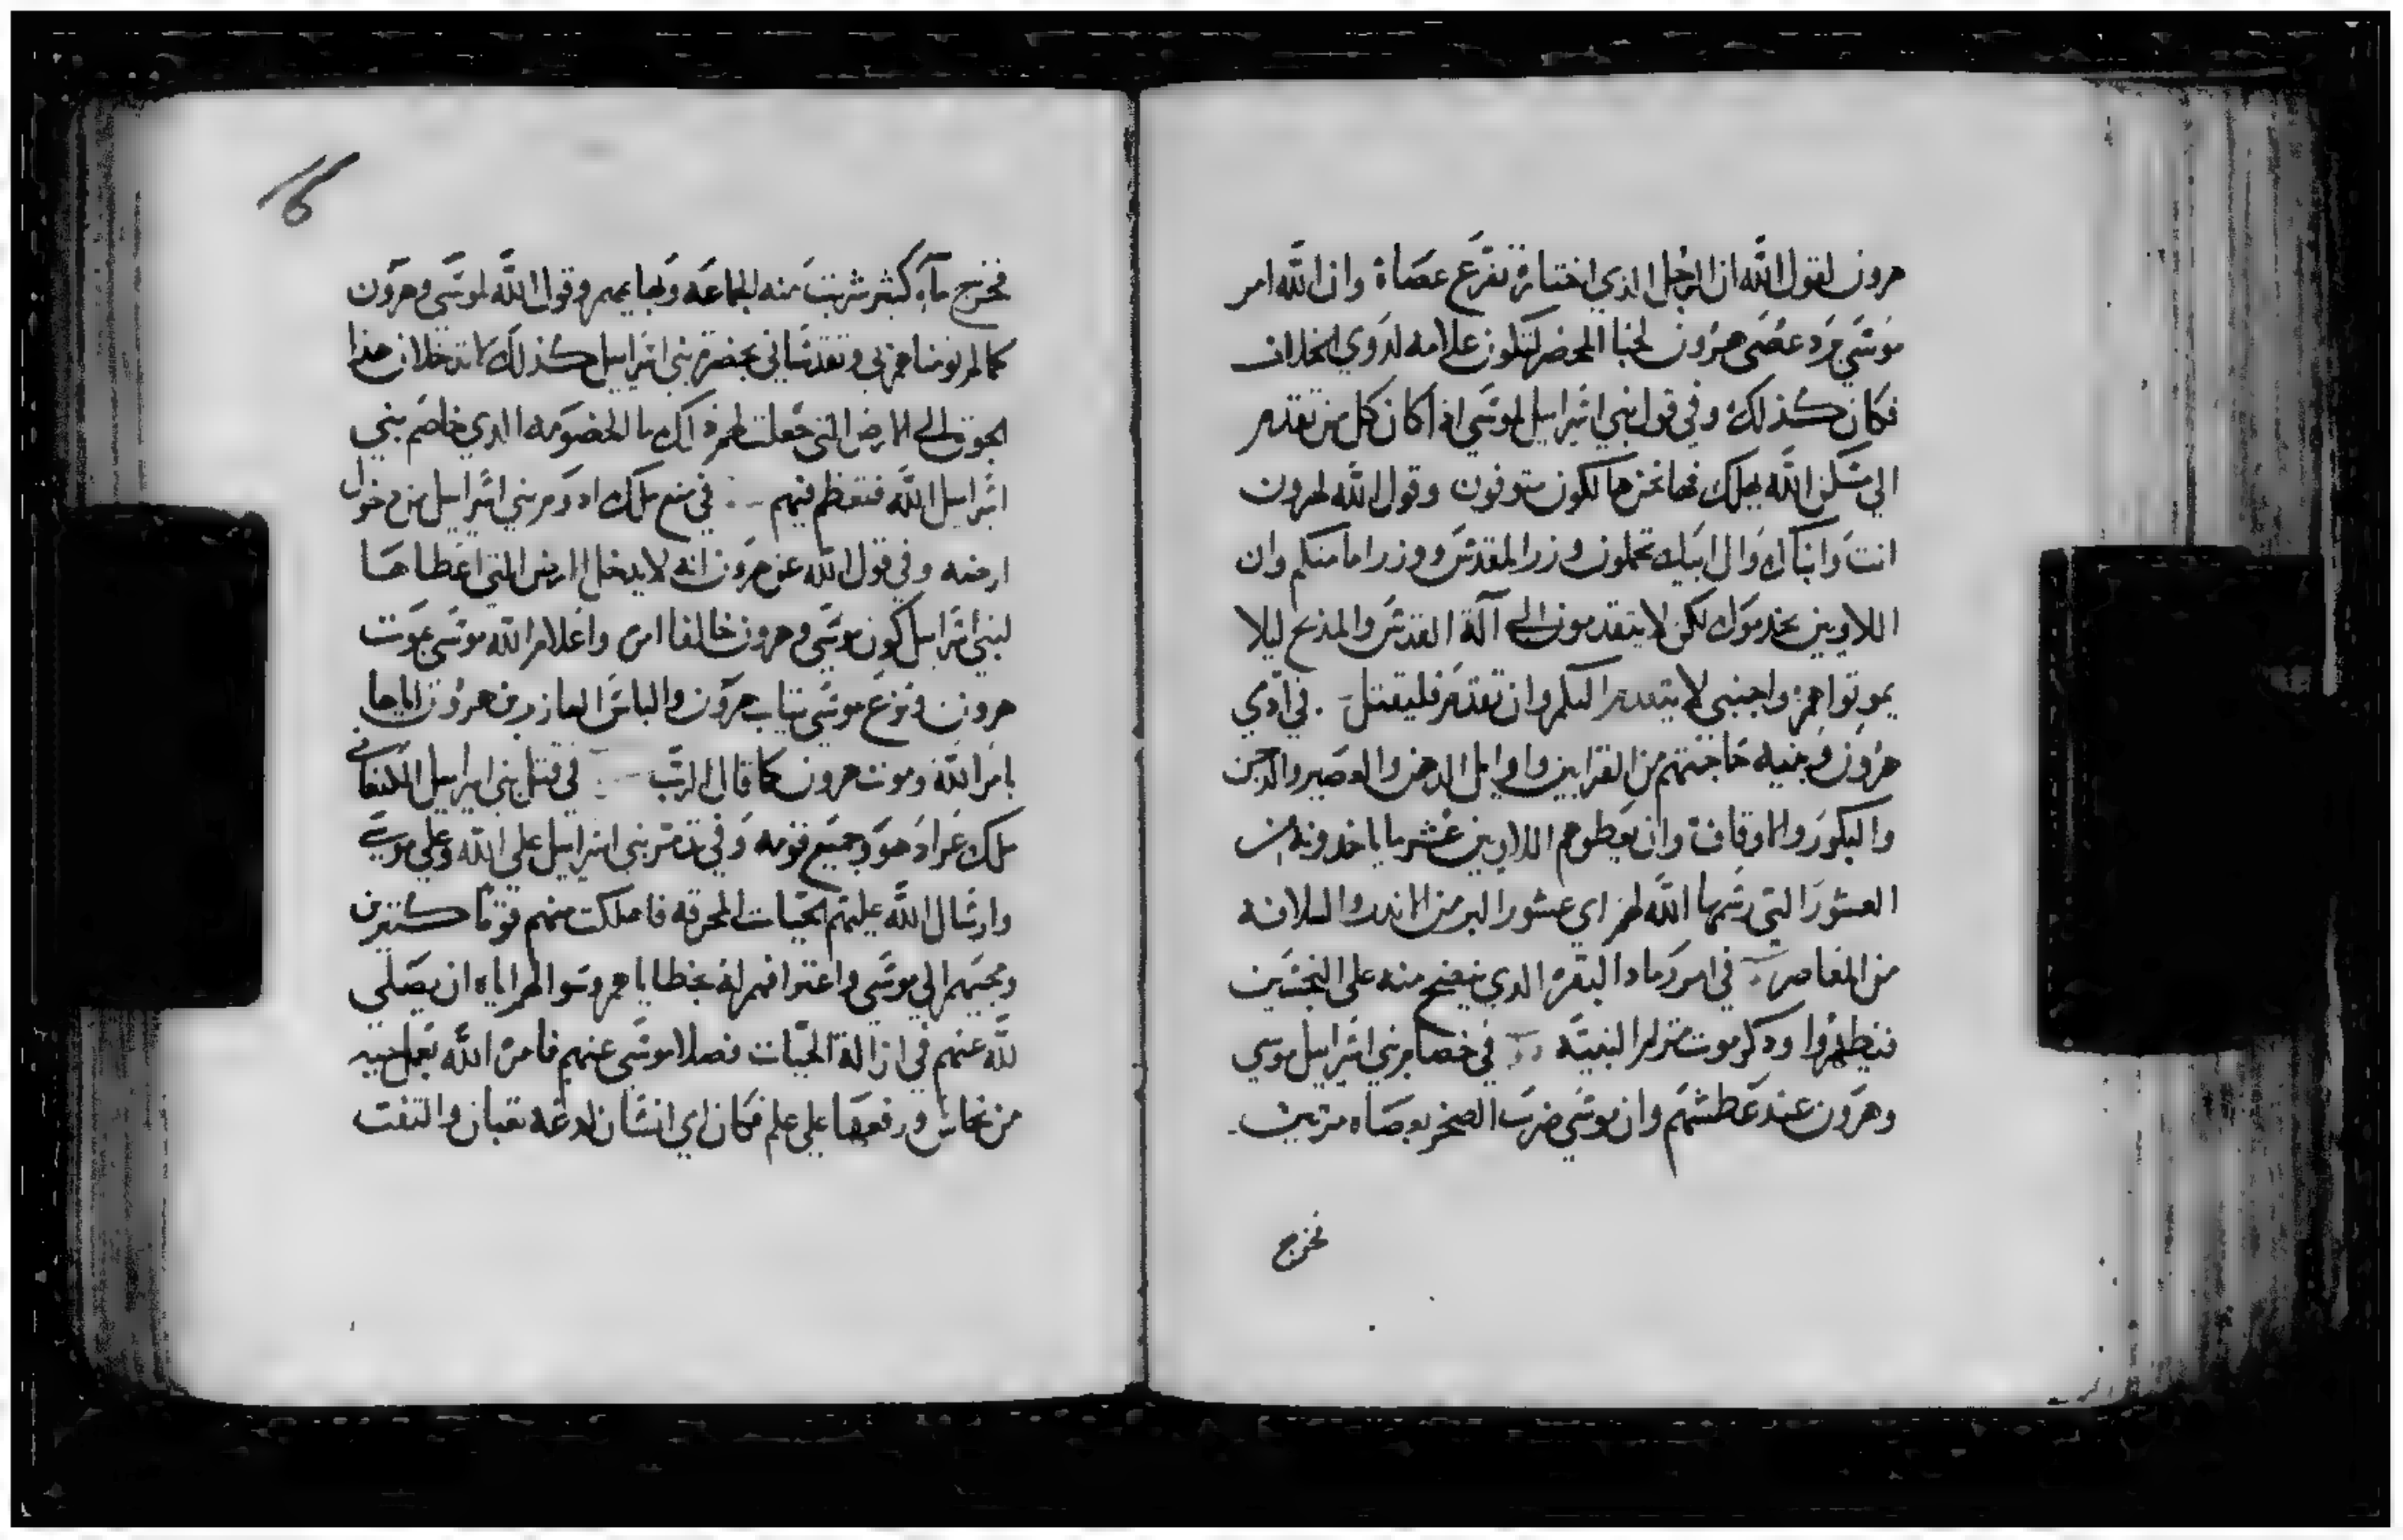 هرون لقول الله ان الرجل الذي اختاره تفرع عصاة وان الله امر
موسي برد عصي هرون لخبا المحضر لتكون علامه لذوي الخلاف
فكان كذلك وفي قول بني اسرايل لموسي اذا كان كل من تقدم
الي مسكن الله يهلك فها نحن هالكون متوفون وقول الله لهرون
انت وابناك وال ابيك تحملون وزر المقدس ووزر امامتكم وان
اللاويين يخدموك لكن لا يتقدمون الي آلة القدس والمذبح ليلا
يموتوا هم واجنبي لا يتقدم اليكم وان تقدم فليقتل في ادي
هرون وبنيه خاجتهم من القرابين واوايل الدهن والعصير والدجن
والبكور والاوقاف وان يعطوهم اللاويين عشر ما ياخدونه من
العشور التي رسمها الله لهم اي عشور البر من الاندر والسلافه
من المعاصر في امر رماد البقره الدي ينضح منه علي النجسين
فيتطهروا ودكر موت مريم النبيه في خصام بني اسرايل موسي
وهرون عند عطشهم وان موسي ضرب الصخر بعصاه مرتين
فخرج
فخرج مآء كثير شربت منه الجماعه وبهايمهم وقول الله لموسي وهرون
كما لم تومنا هم بي وتقدساني بحضرة بني اسرايل كذلك لا تدخلان هذا
الجوق الي الارض التي جعلت لهم ذلك ما الخصومه الدي خاصم بني
اسرايل الله فتعظم فيهم في منع ملك ادوم بني اسرايل من دخول
ارضه وفي قول الله عن هرون انه لا يدخل الارض التي اعطاها
لبني اسرايل كون موسي وهرون خالفا امره واعلام الله موسي بموت
هرون ونزع موسي تياب هرون والباس العازر بن هرون اياها
بامر الله وموت هرون كما قال الرب في قتل بني اسرايل الكنعاني
ملك عراد هو وجميع قومه وفي تدمر بني اسرايل علي الله وعلي موسي
وارسال الله عليهم الحيات المحرقه فاهلكت منهم قوما كتيرين
ومجيهم الي موسي واعترافهم له بخطاياهم وسوالهم اياه ان يصلي
لله عنهم في ازالة الحيات فصلا موسي عنهم فامره الله بعمل حيه
من نحاس ورفعها علي علم فكان اي انسان لدغه تعبان والتفت